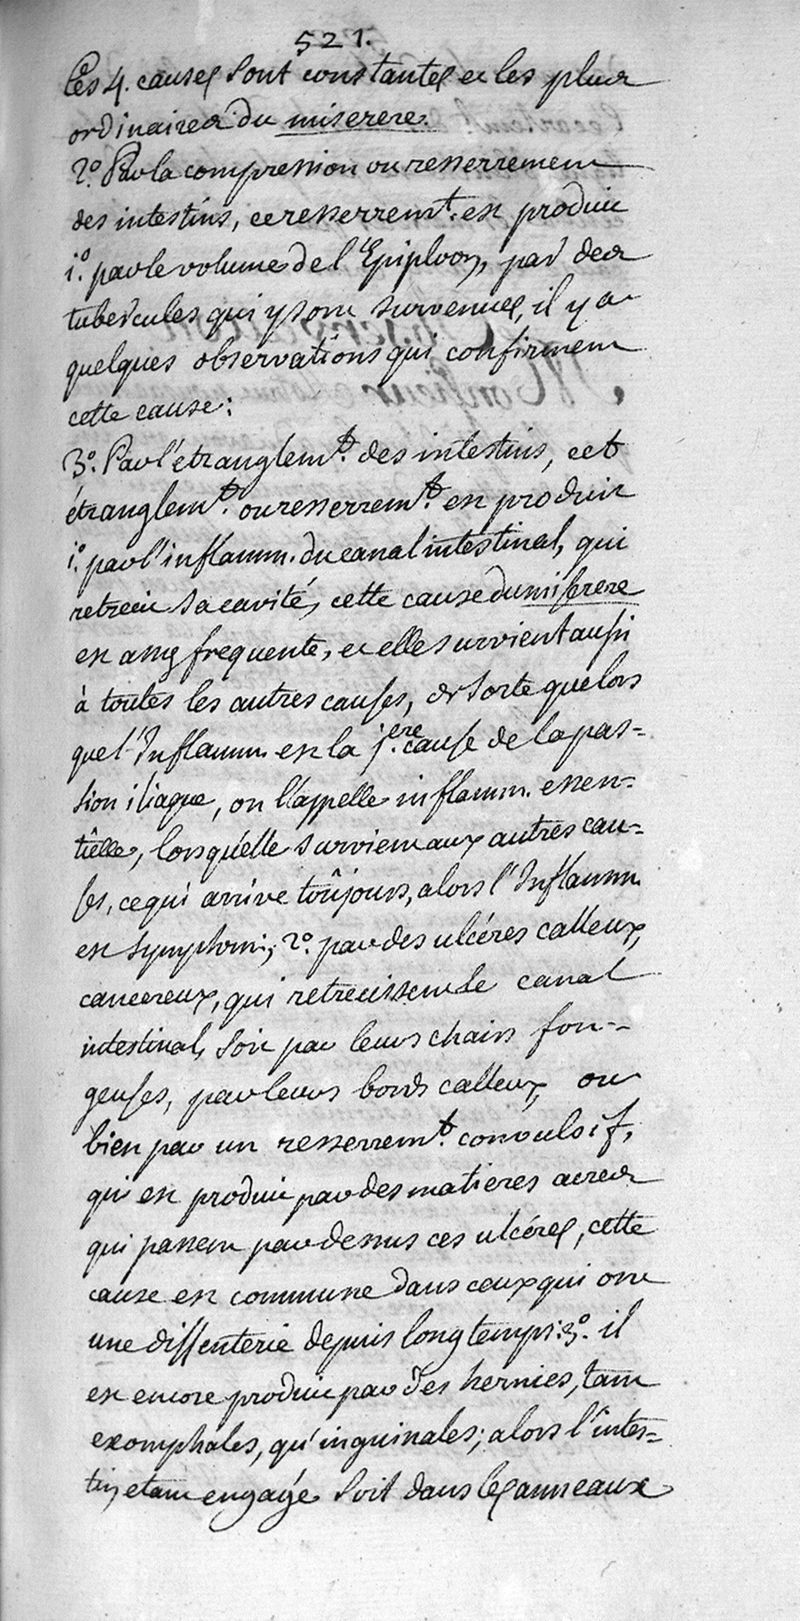 521.
Ces 4. causes sont constantes et les plus
ordinaires du miserere.
2.° Par la compression ou resserrement
des intestins, ce resserrem.t est produit
1.° par le volume de l'Epiploon, par des
tubercules qui y sont survenues, il y a
quelques observations qui confirment
cette cause:
3.° Par l'étranglem.t des intestins, cet
étranglem.t ou resserrem.t est produit
1.° par l'inflamm. du canal intestinal, qui
retrecit sa cavité, cette cause du miserere
est assez frequente, et elle survient aussi
à toutes les autres causes, de sorte que lors
que l'Inflamm. est la 1.ere cause de la pas=
sion iliaque, on l'appelle inflamm. essen=
tielle, lorsqu'elle survient aux autres cau=
ses, ce qui arrive toûjours, alors l'Inflamm.
est symptom; 2.° par des ulcéres calleux,
cancereux, qui retrecissent le canal
intestinal, soit par leurs chairs fon=
geuses, par leurs bords calleux, ou
bien par un resserrem.t convulsif,
qui est produit par des matieres acres
qui passent par dessus ces ulcéres, cette
cause est commune dans ceux qui ont
une dissenterie depuis longtemps: 3.° il
est encore produit par des hernies, tant
exomphales, qu'inguinales; alors l'intes=
tin etant engagé soit dans les anneaux